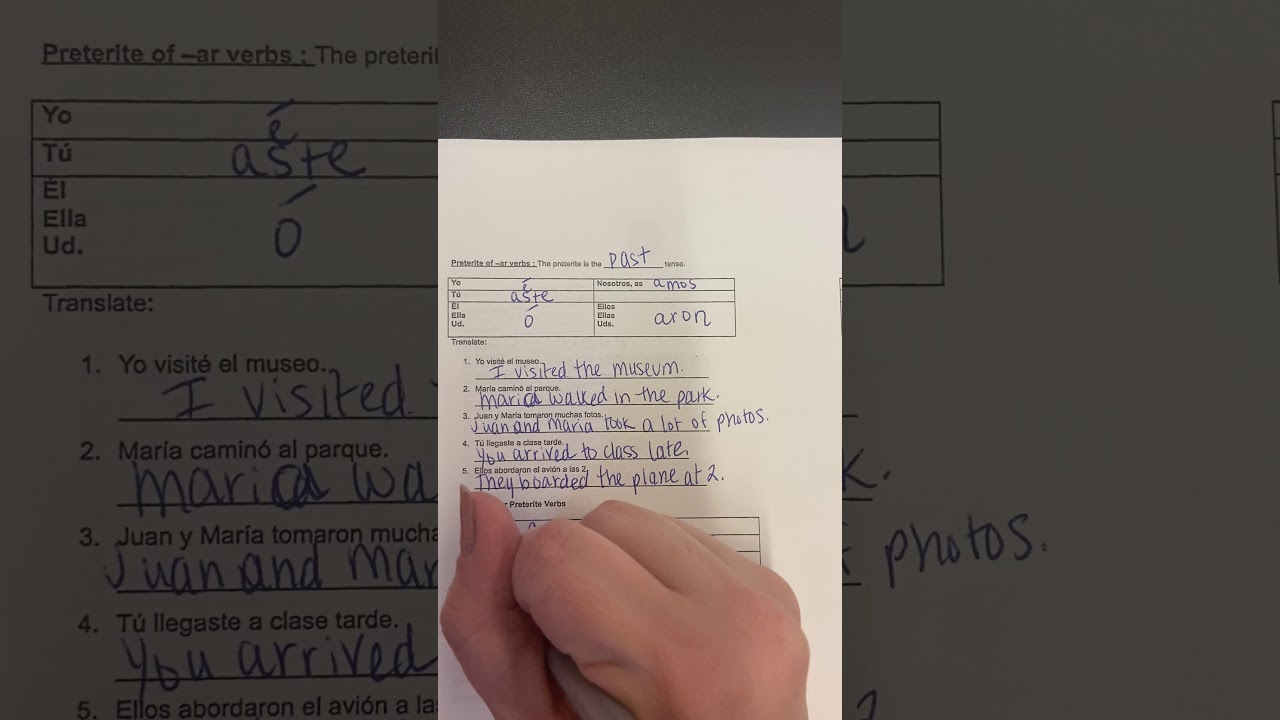 Preterite of –ar verbs : The preterite is the past tense.
Yo é Nosotros, as amos
Tú aste
Él Ellos
Ella ó Ellas aron
Ud. Uds.
Translate:
1. Yo visité el museo.
I visited the museum.
2. María caminó al parque.
maria walked in the park.
3. Juan y María tomaron muchas fotos.
Juan and Maria took a lot of photos.
4. Tú llegaste a clase tarde.
You arrived to class late.
5. Ellos abordaron el avión a las 2.
They boarded the plane at 2.
Preterite Verbs